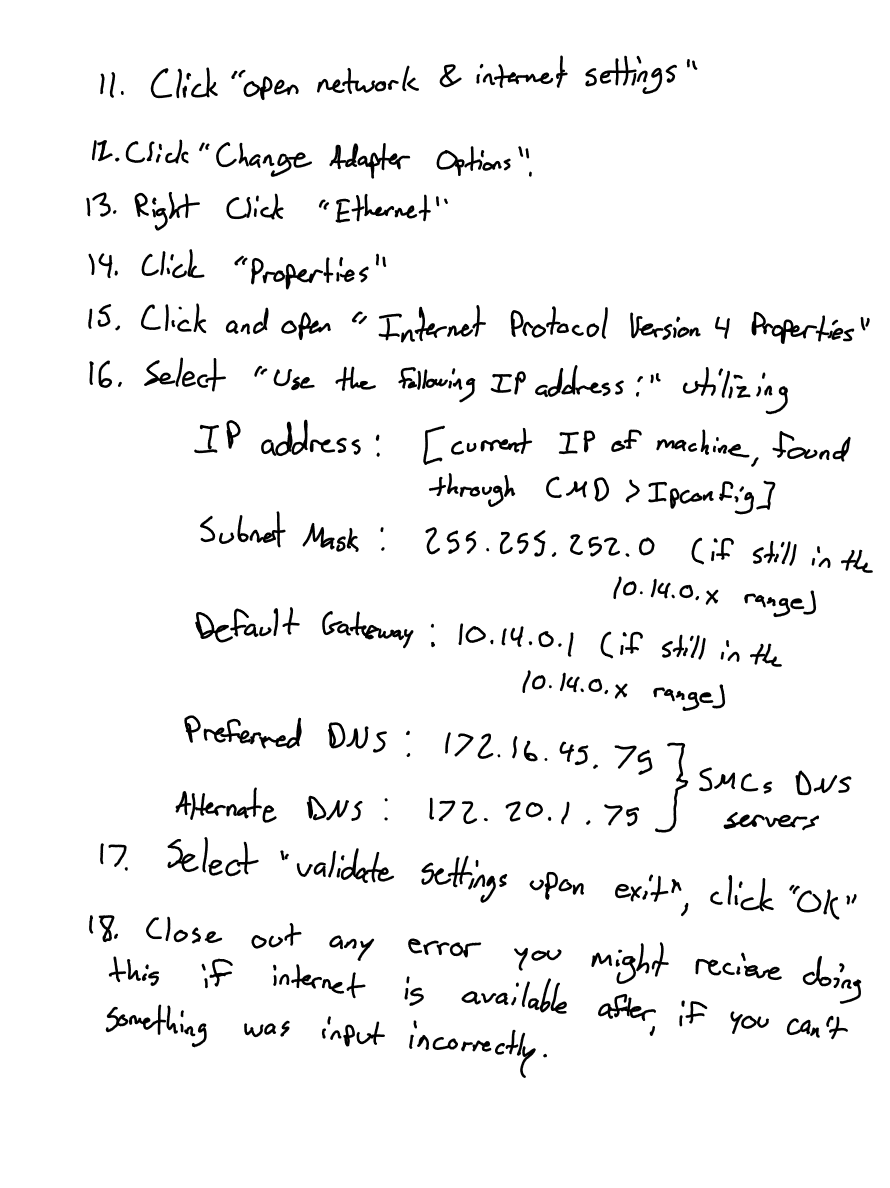 11. Click "open network & internet settings"
12. Click "Change Adapter Options".
13. Right Click "Ethernet"
14. Click "Properties"
15. Click and open "Internet Protocol Version 4 Properties"
16. Select "Use the following IP address:" utilizing
IP address: [current IP of machine, found
through CMD > Ipconfig]
Subnet Mask: 255.255.252.0 (if still in the
10.14.0.x range)
Default Gateway: 10.14.0.1 (if still in the
10.14.0.x range)
Preferred DNS: 172.16.45.75
Alternate DNS: 172.20.1.75
SMCs DNS
servers
17. Select "validate settings upon exit", click "OK"
18. Close out any error you might recieve doing
this if internet is available after, if you can't
something was input incorrectly.